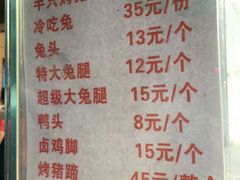 半只烤兔
35元/份
冷吃兔
13元/个
兔头
12元/个
特大兔腿
15元/个
超级大兔腿
8元/个
鸭头
15元/个
卤鸡脚
45元/整个
烤猪蹄